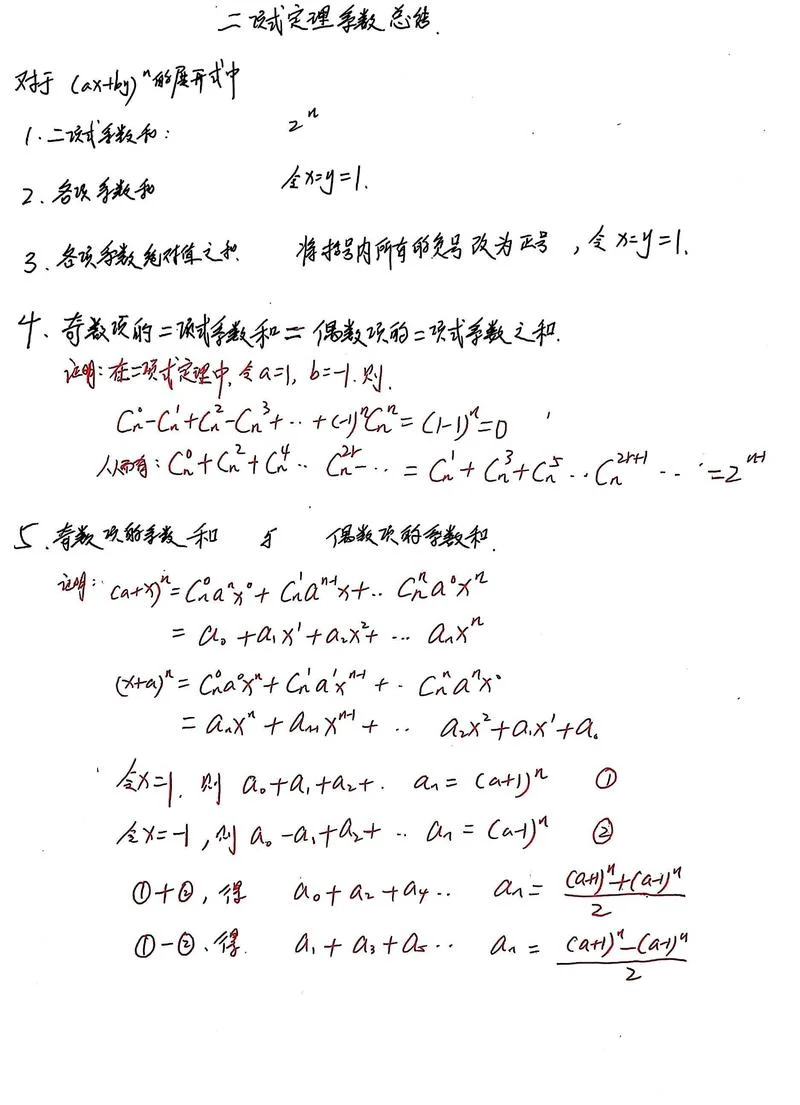 二项式定理系数总结.
对于 (ax+by)ⁿ的展开式中
1.二项式系数和: 2ⁿ
2.各项系数和 令x=y=1.
3.各项系数绝对值之和. 将括号内所有的负号改为正号,令x=y=1.
4、奇数项的二项式系数和=偶数项的二项式系数之和.
证明:在二项式定理中,令a=1, b=-1.则.
Cₙ⁰-Cₙ¹+Cₙ²-Cₙ³+··+(-1)ⁿCₙⁿ=(1-1)ⁿ=0
从而有:Cₙ⁰+Cₙ²+Cₙ⁴·· Cₙ²ʳ-··· = Cₙ¹+Cₙ³+Cₙ⁵··Cₙ²ʳ⁺¹ ··· =2ⁿ⁻¹
5.奇数项的系数和 与 偶数项的系数和.
证明: (a+x)ⁿ=Cₙ⁰aⁿx⁰+Cₙ¹aⁿ⁻¹x+·· Cₙⁿa⁰xⁿ
= a₀+a₁x¹+a₂x²+ ··· aₙxⁿ
(x+a)ⁿ=Cₙ⁰a⁰xⁿ+Cₙ¹a¹xⁿ⁻¹+ · Cₙⁿaⁿx⁰
= aₙxⁿ+aₙ₋₁xⁿ⁻¹+ ·· a₂x²+a₁x¹+a₀
令x=1. 则 a₀+a₁+a₂+· aₙ=(a+1)ⁿ ①
令x=-1,则 a₀-a₁+a₂+ ·· aₙ=(a-1)ⁿ ②
①+②,得 a₀+a₂+a₄·· aₙ= ((a+1)ⁿ+(a-1)ⁿ)/2
①-②、得. a₁+a₃+a₅··· aₙ = ((a+1)ⁿ-(a-1)ⁿ)/2